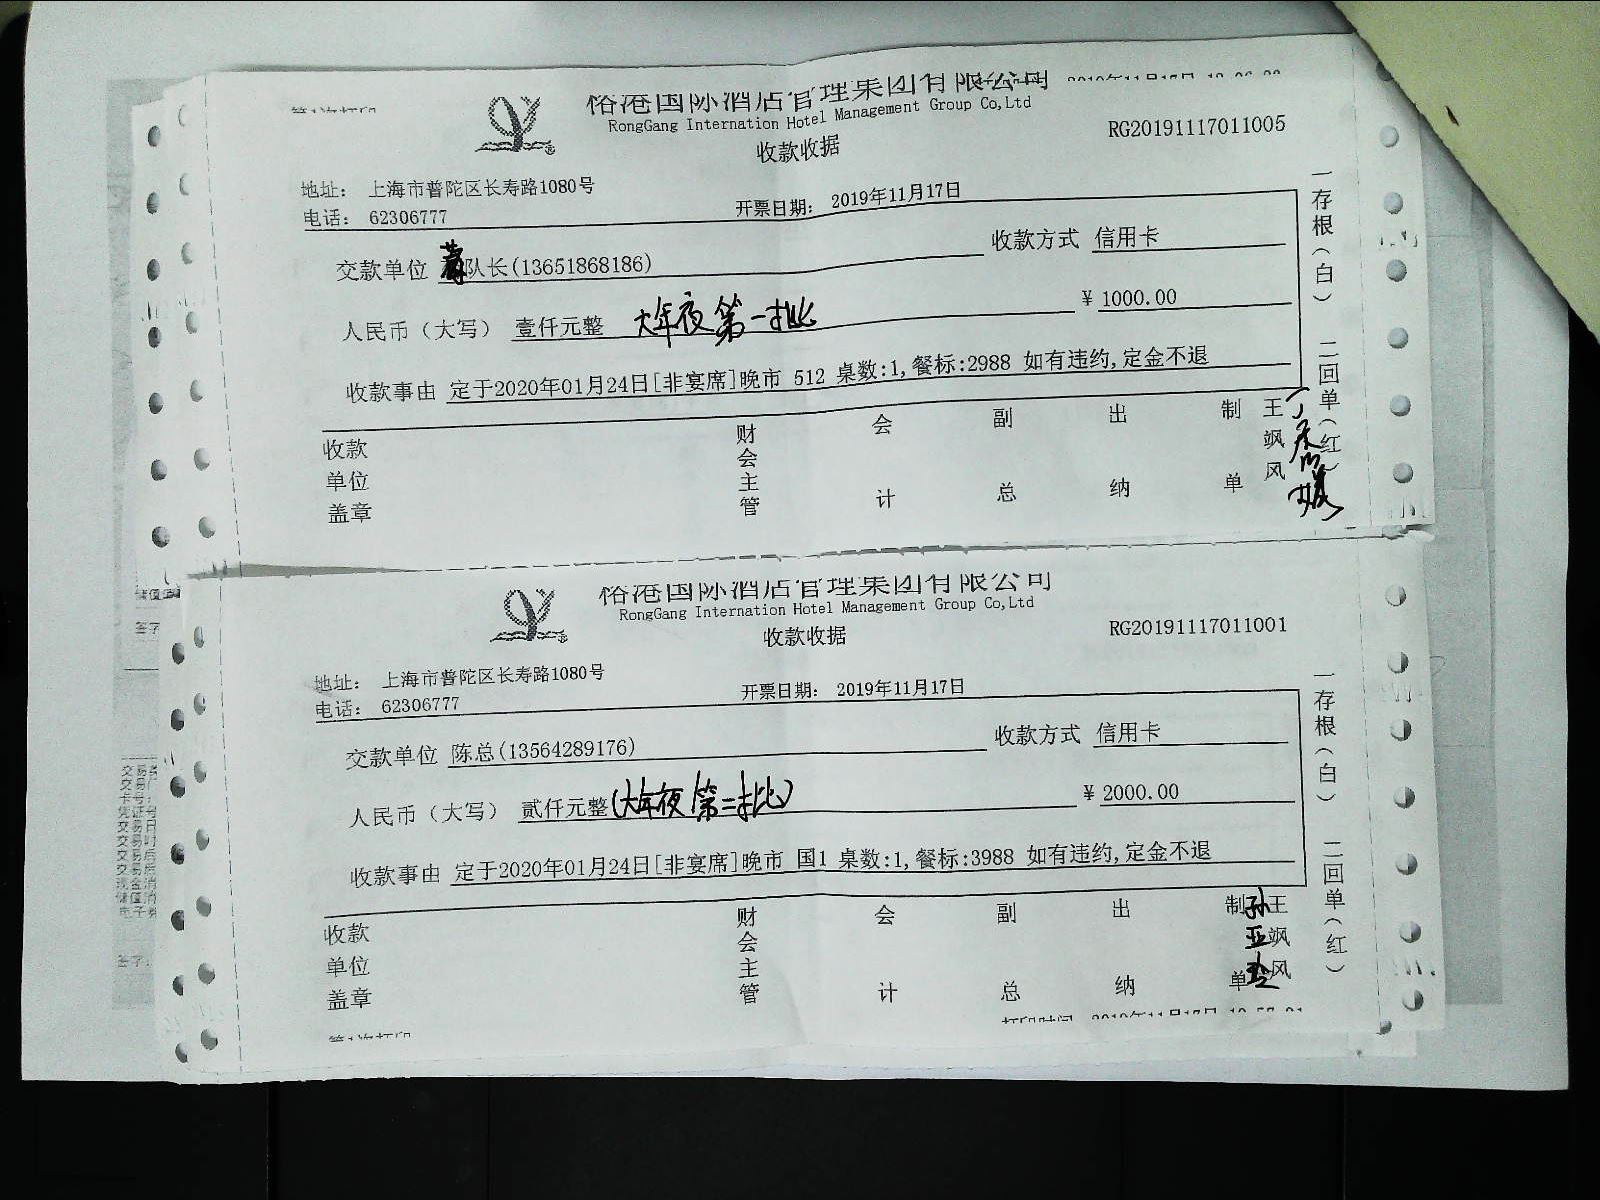 裕港国际酒店管理集团有限公司
RongGang Internation Hotel Management Group Co,Ltd
收款收据
RG20191117011005
地址： 上海市普陀区长寿路1080号
电话： 62306777
开票日期： 2019年11月17日
交款单位 队长(13651868186)
收款方式 信用卡
人民币（大写） 壹仟元整 大年夜第一批
¥ 1000.00
收款事由 定于2020年01月24日[非宴席]晚市 512 桌数:1,餐标:2988 如有违约,定金不退
收款单位盖章
财会主管
会计
副总
出纳
制单
王飒风
一存根（白） 二回单（红）
裕港国际酒店管理集团有限公司
RongGang Internation Hotel Management Group Co,Ltd
收款收据
RG20191117011001
地址： 上海市普陀区长寿路1080号
电话： 62306777
开票日期： 2019年11月17日
交款单位 陈总(13564289176)
收款方式 信用卡
人民币（大写） 贰仟元整(大年夜第二批)
¥ 2000.00
收款事由 定于2020年01月24日[非宴席]晚市 国1 桌数:1,餐标:3988 如有违约,定金不退
收款单位盖章
财会主管
会计
副总
出纳
制单
孙亚玲
王飒风
一存根（白） 二回单（红）
第1次打印